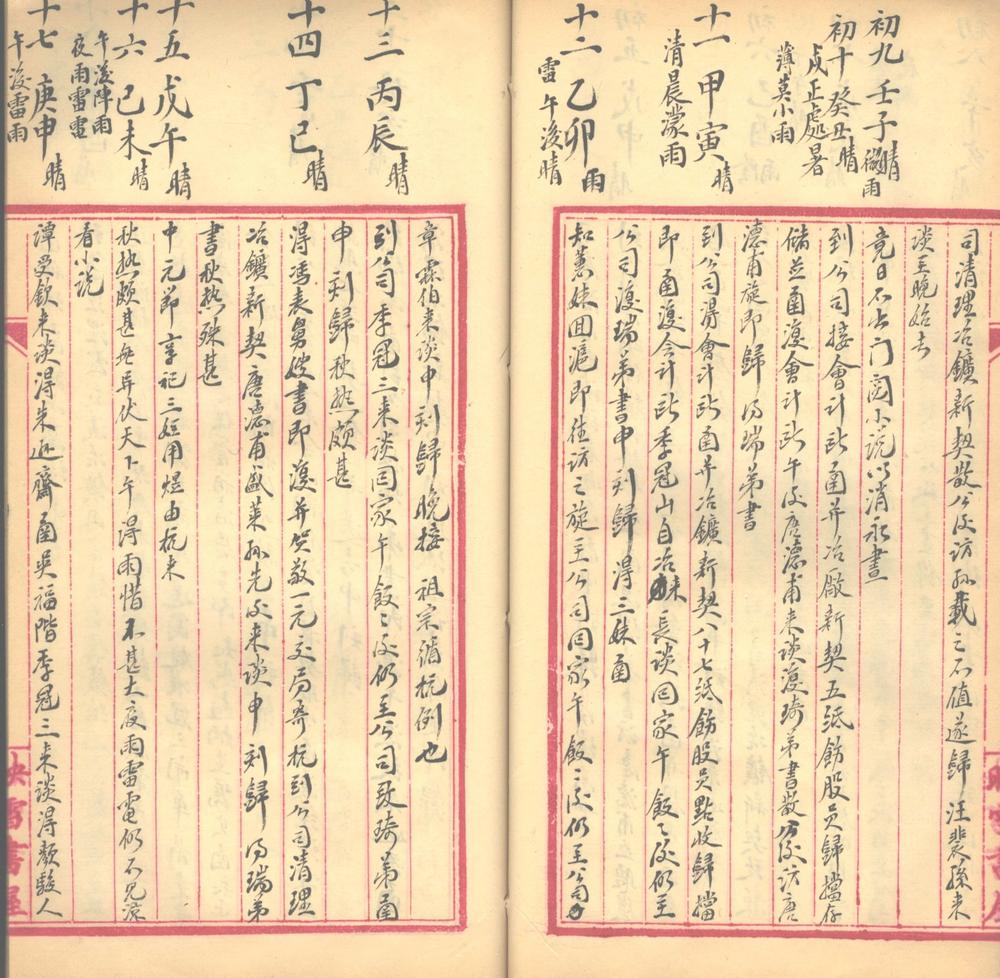 司清理冶鑛新契散公後訪孫載之不值遂歸汪裴孫来
談至晚始去
初九 壬子 晴 微雨
竟日不出门閲小说以消永晝
初十 癸丑 晴
戌正處暑
薄莫小雨
到公司接會計所函并冶廠新契五纸飭股員歸擋存
儲並函復會計所午後唐德甫来談復琦弟書散公後訪唐
德甫旋即歸 得瑞弟書
十一 甲寅 晴
清晨濛雨
到公司得會計所函并冶鑛新契八十七纸飭股員點收歸擋
即函復会计所季冠山自冶来長談回家午飯飯後仍至
公司復瑞弟書申刻歸得三妹函
十二 乙卯 雨
雷 午後晴
知蕙妹回滬即往訪之旋至公司回家午飯飯後仍至公司
章霖伯来談申刻歸晚接 祖宗循杭例也
十三 丙辰 晴
到公司季冠三来談回家午飯飯後仍至公司致琦弟函
申刻歸秋热颇甚
十四 丁巳 晴
得馮表舅嫂書即復并奠敬一元交局寄杭到公司清理
冶鑛新契唐德甫盛莱孙先後来談申刻歸 得瑞弟
書秋热殊甚
十五 戊午 晴
中元節享祀三妊用煜由杭来
十六 己未 晴
午後陣雨
夜雨雷電
秋热颇甚無异伏天下午得雨惜不甚大夜雨雷電仍不見凉
看小说
十七 庚申 晴
午後雷雨
譚受欽来談得朱逊齋函吳福階季冠三来談得顏駿人